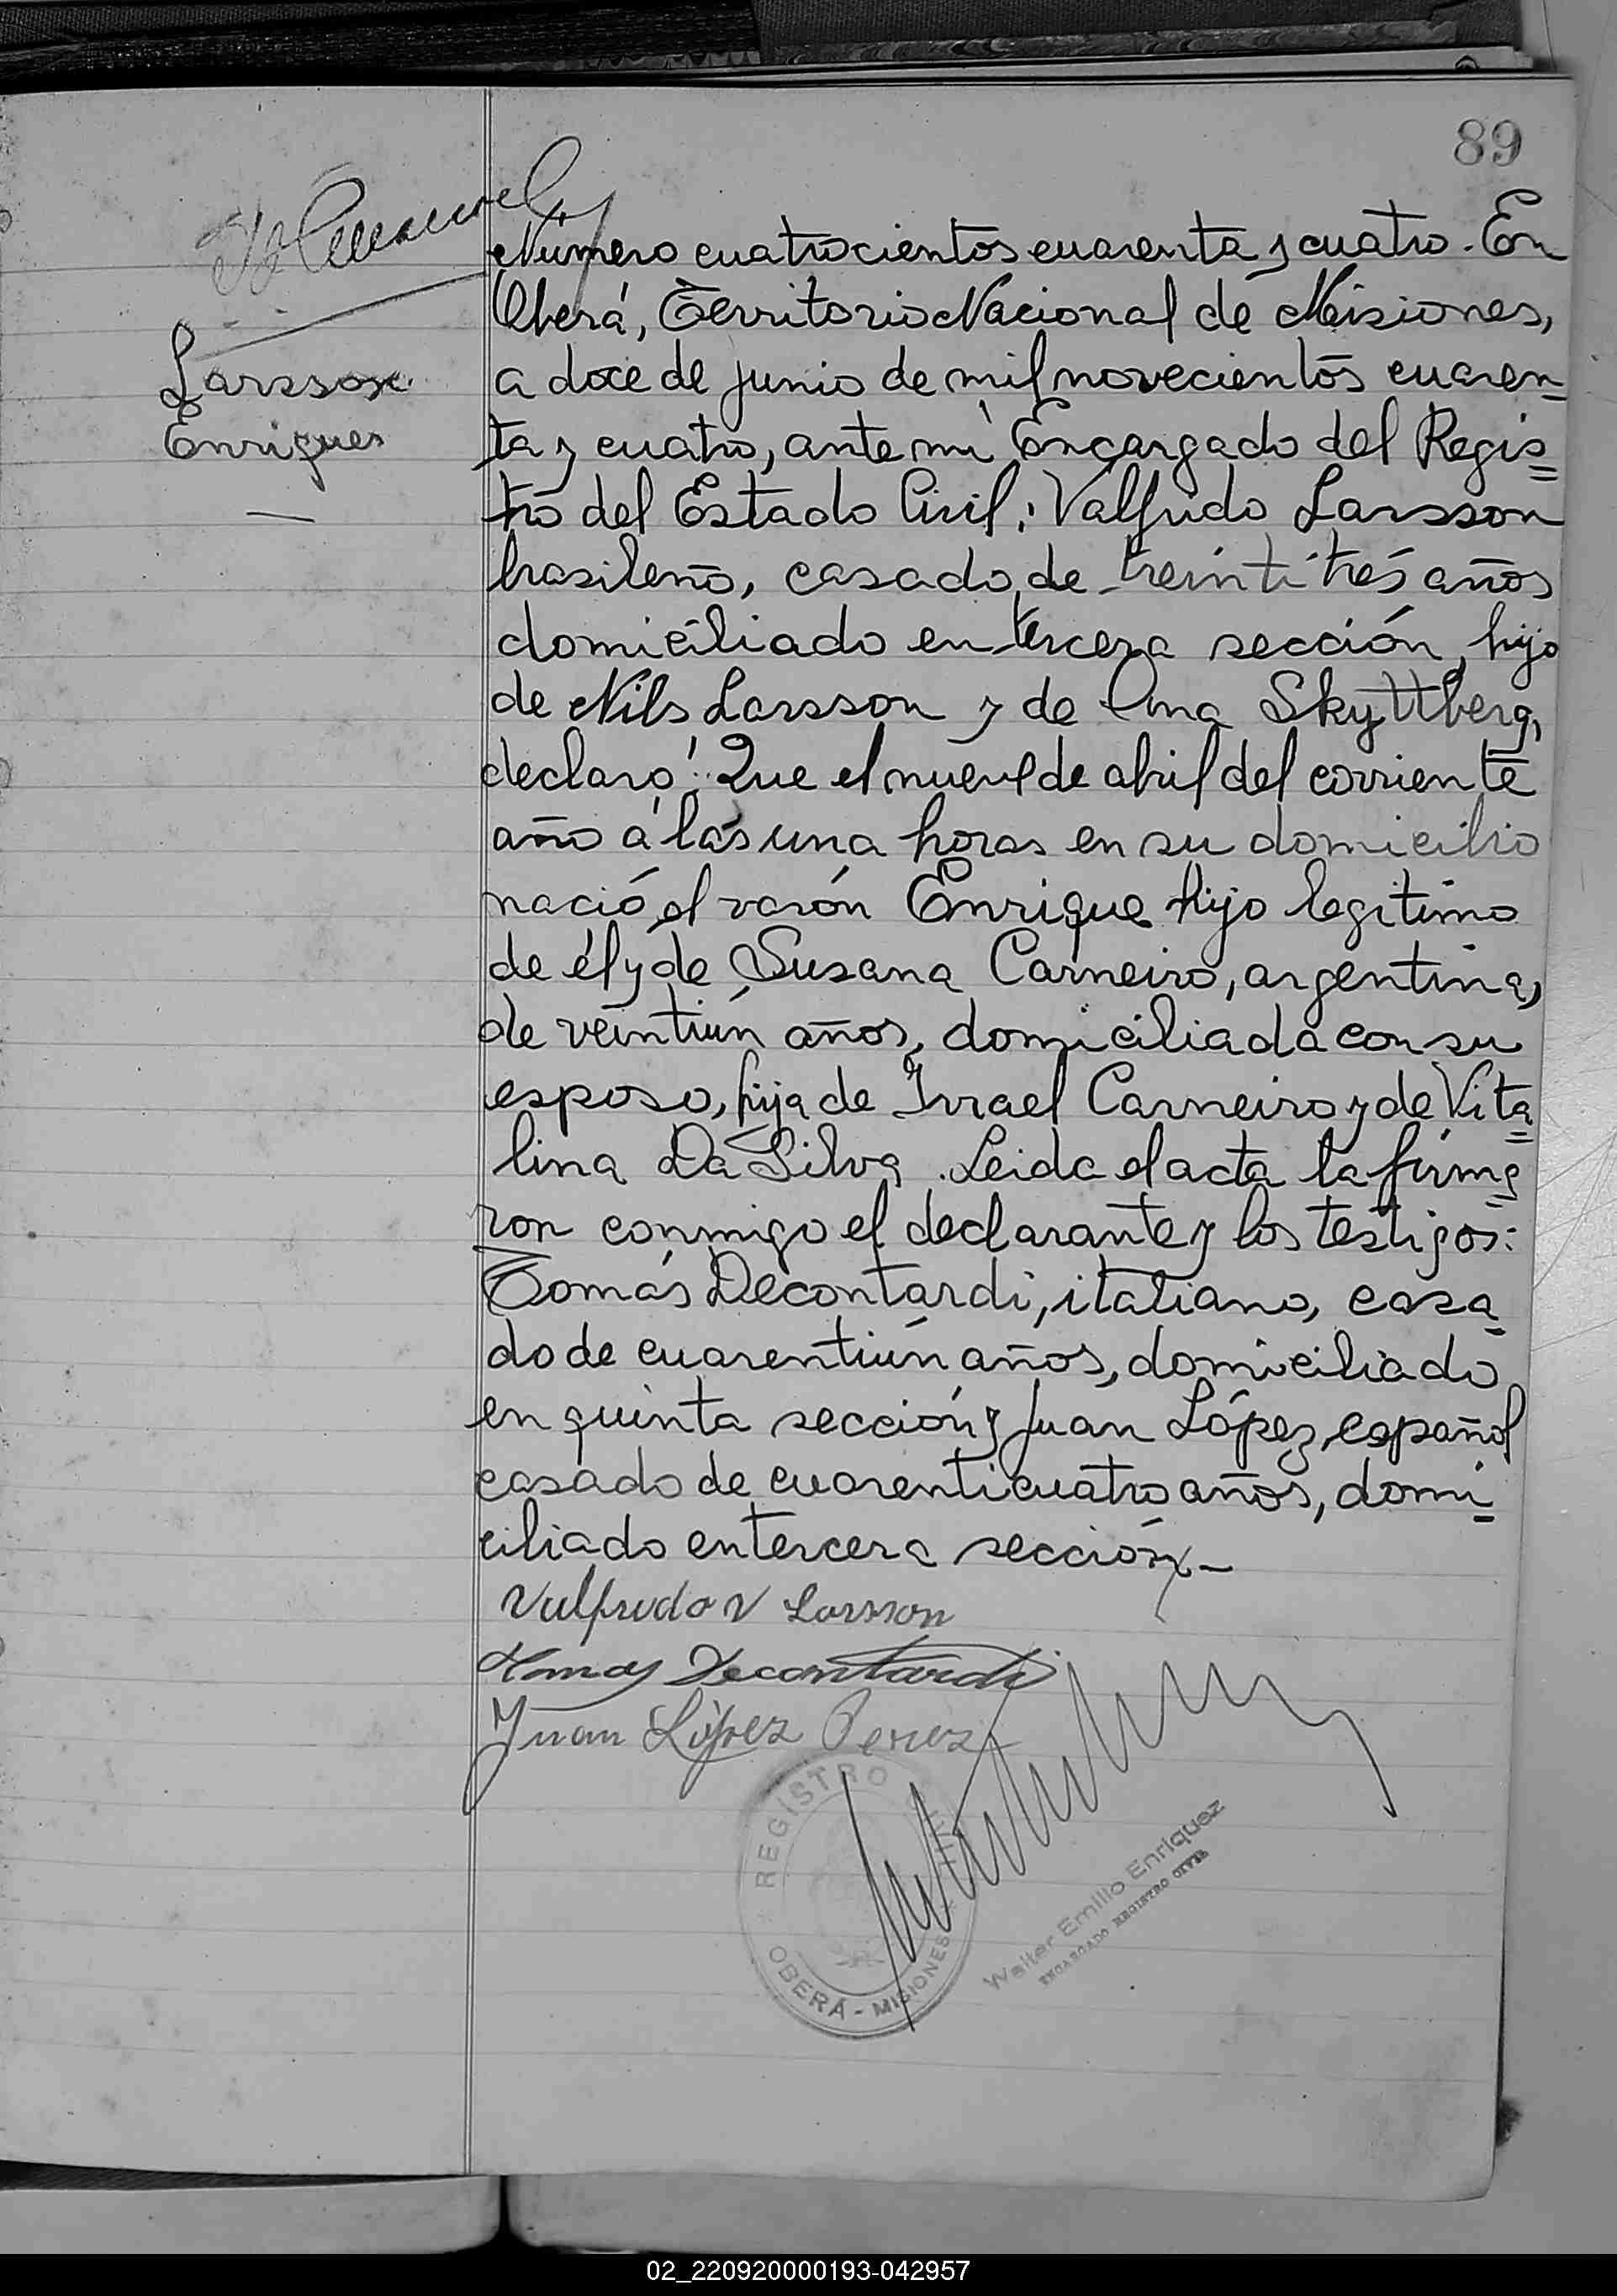 89
Número cuatrocientos cuarenta y cuatro. En
Oberá, Territorio Nacional de Misiones,
Larsson
a doce de junio de mil novecientos cuaren=
Enrique
ta y cuatro, ante mí Encargado del Regis=
tro del Estado Civil: Valfrido Larsson
brasileño, casado, de treinti trés años
domiciliado en tercera sección, hijo
de Nils Larsson y de Ana Skyttberg,
declaró: Que el nueve de abril del corriente
año á las una horas en su domicilio
nació el varón Enrique hijo legitimo
de él y de Susana Carneiro, argentina,
de veintiún años, domiciliada con su
esposo, hija de Israel Carneiro y de Vita=
lina Da Silva. Leida el acta la firma=
ron conmigo el declarante y los testigos:
Tomás Decontardi, italiano, casa=
do de cuarentiún años, domiciliado
en quinta sección y Juan López, español
casado de cuarenticuatro años, domi=
ciliado en tercera sección.-
Valfredo V Larsson
Tomas Decontardi
Juan López Perez
REGISTRO CIVIL
OBERÁ - MISIONES
Walter Emilio Enriquez
ENCARGADO REGISTRO CIVIL
02_220920000193-042957